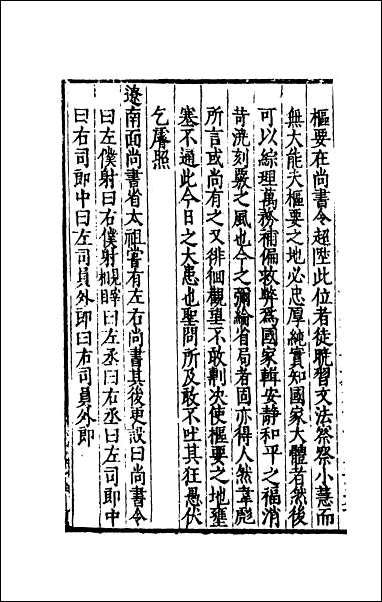 樞要在尚書令超陞此位者徒熟習文法祭祭小慧而
無大能夫樞要之地必忠厚純實知國家大體者然後
可以綜理萬務補偏救弊爲國家輯安靜和平之福消
苛洗刻覈之風也今之彌綸省局者固亦得人然韋彪
所言或尚有之又徘徊觀望不敢剸決使樞要之地壅
塞不通此今日之大患也聖問所及敢不吐其狂愚伏
乞睿照
遼南面尚書省太祖嘗有左右尚書其後更設曰尚書令
曰左僕射曰右僕射曰左丞曰右丞曰左司郎中
曰右司郎中曰左司員外郎曰右司員外郎